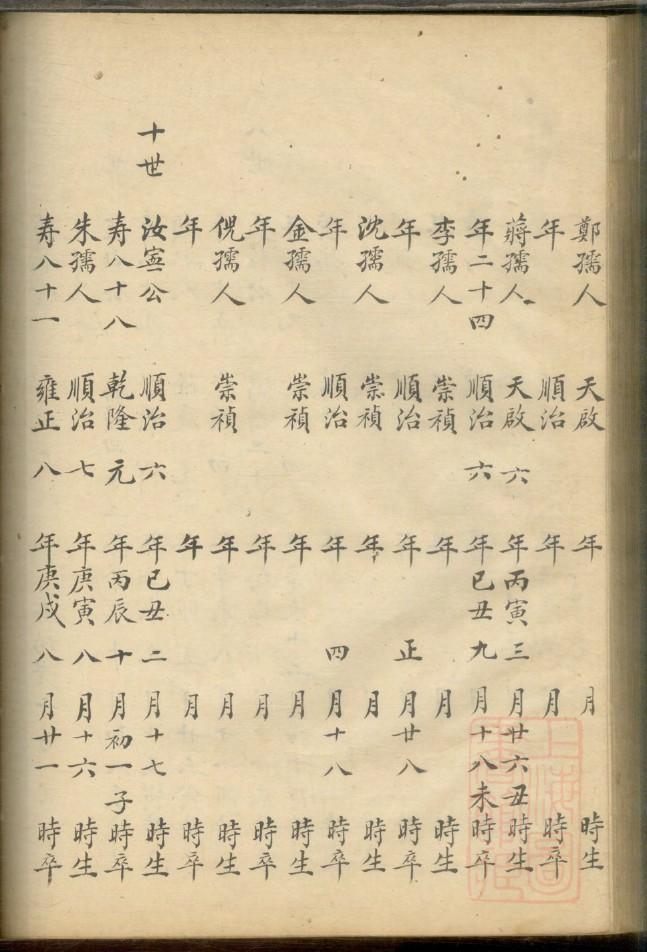 鄭孺人 天啟 年 月 時生
年 順治 年 月 時卒
蔣孺人 天啟 六 年丙寅 三 月廿六丑時生
年二十四 順治 六 年己丑 九 月十八未時卒
李孺人 崇禎 年 月 時生
年 順治 年 正 月廿八 時卒
沈孺人 崇禎 年 月 時生
年 順治 年 四 月十八 時卒
金孺人 崇禎 年 月 時生
年 年 月 時卒
倪孺人 崇禎 年 月 時生
年 年 月 時卒
十世 汝寍公 順治 六 年己丑 二 月十七 時生
寿八十八 乾隆 元 年丙辰 十 月初一子時卒
朱孺人 順治 七 年庚寅 八 月十六 時生
寿八十一 雍正 八 年庚戌 八 月廿一 時卒